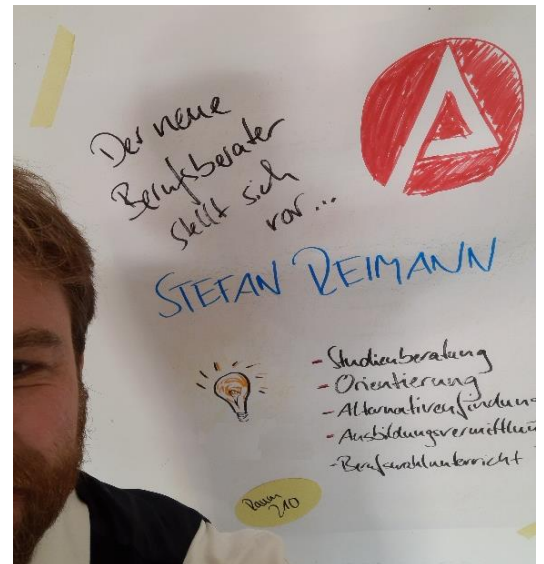 Der neue
Berufsberater
stellt sich
vor...
STEFAN REIMANN
- Studienberatung
- Orientierung
- Alternativenfindung
- Ausbildungsvermittlung
- Berufswahlunterricht
Raum
210